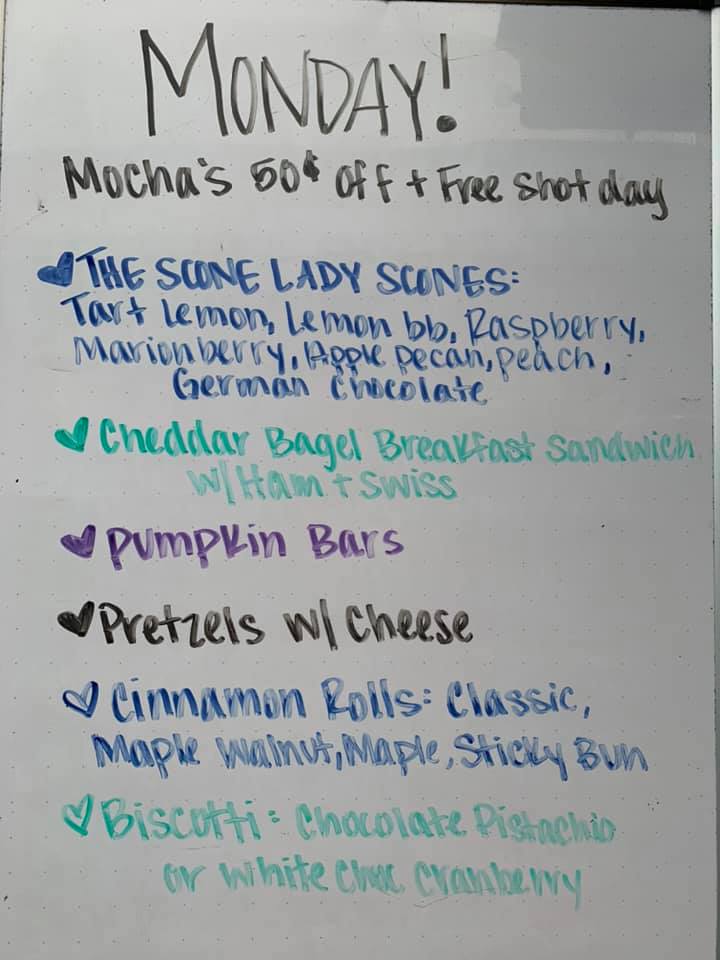 MONDAY!
Mocha's 50¢ off + Free shot day
THE SCONE LADY SCONES:
Tart Lemon, Lemon bb, Raspberry,
Marionberry, Apple pecan, peach,
German Chocolate
Cheddar Bagel Breakfast Sandwich
w/ Ham + Swiss
Pumpkin Bars
Pretzels w/ Cheese
Cinnamon Rolls: Classic,
Maple Walnut, Maple, Sticky Bun
Biscotti: Chocolate Pistachio
or White Choc Cranberry